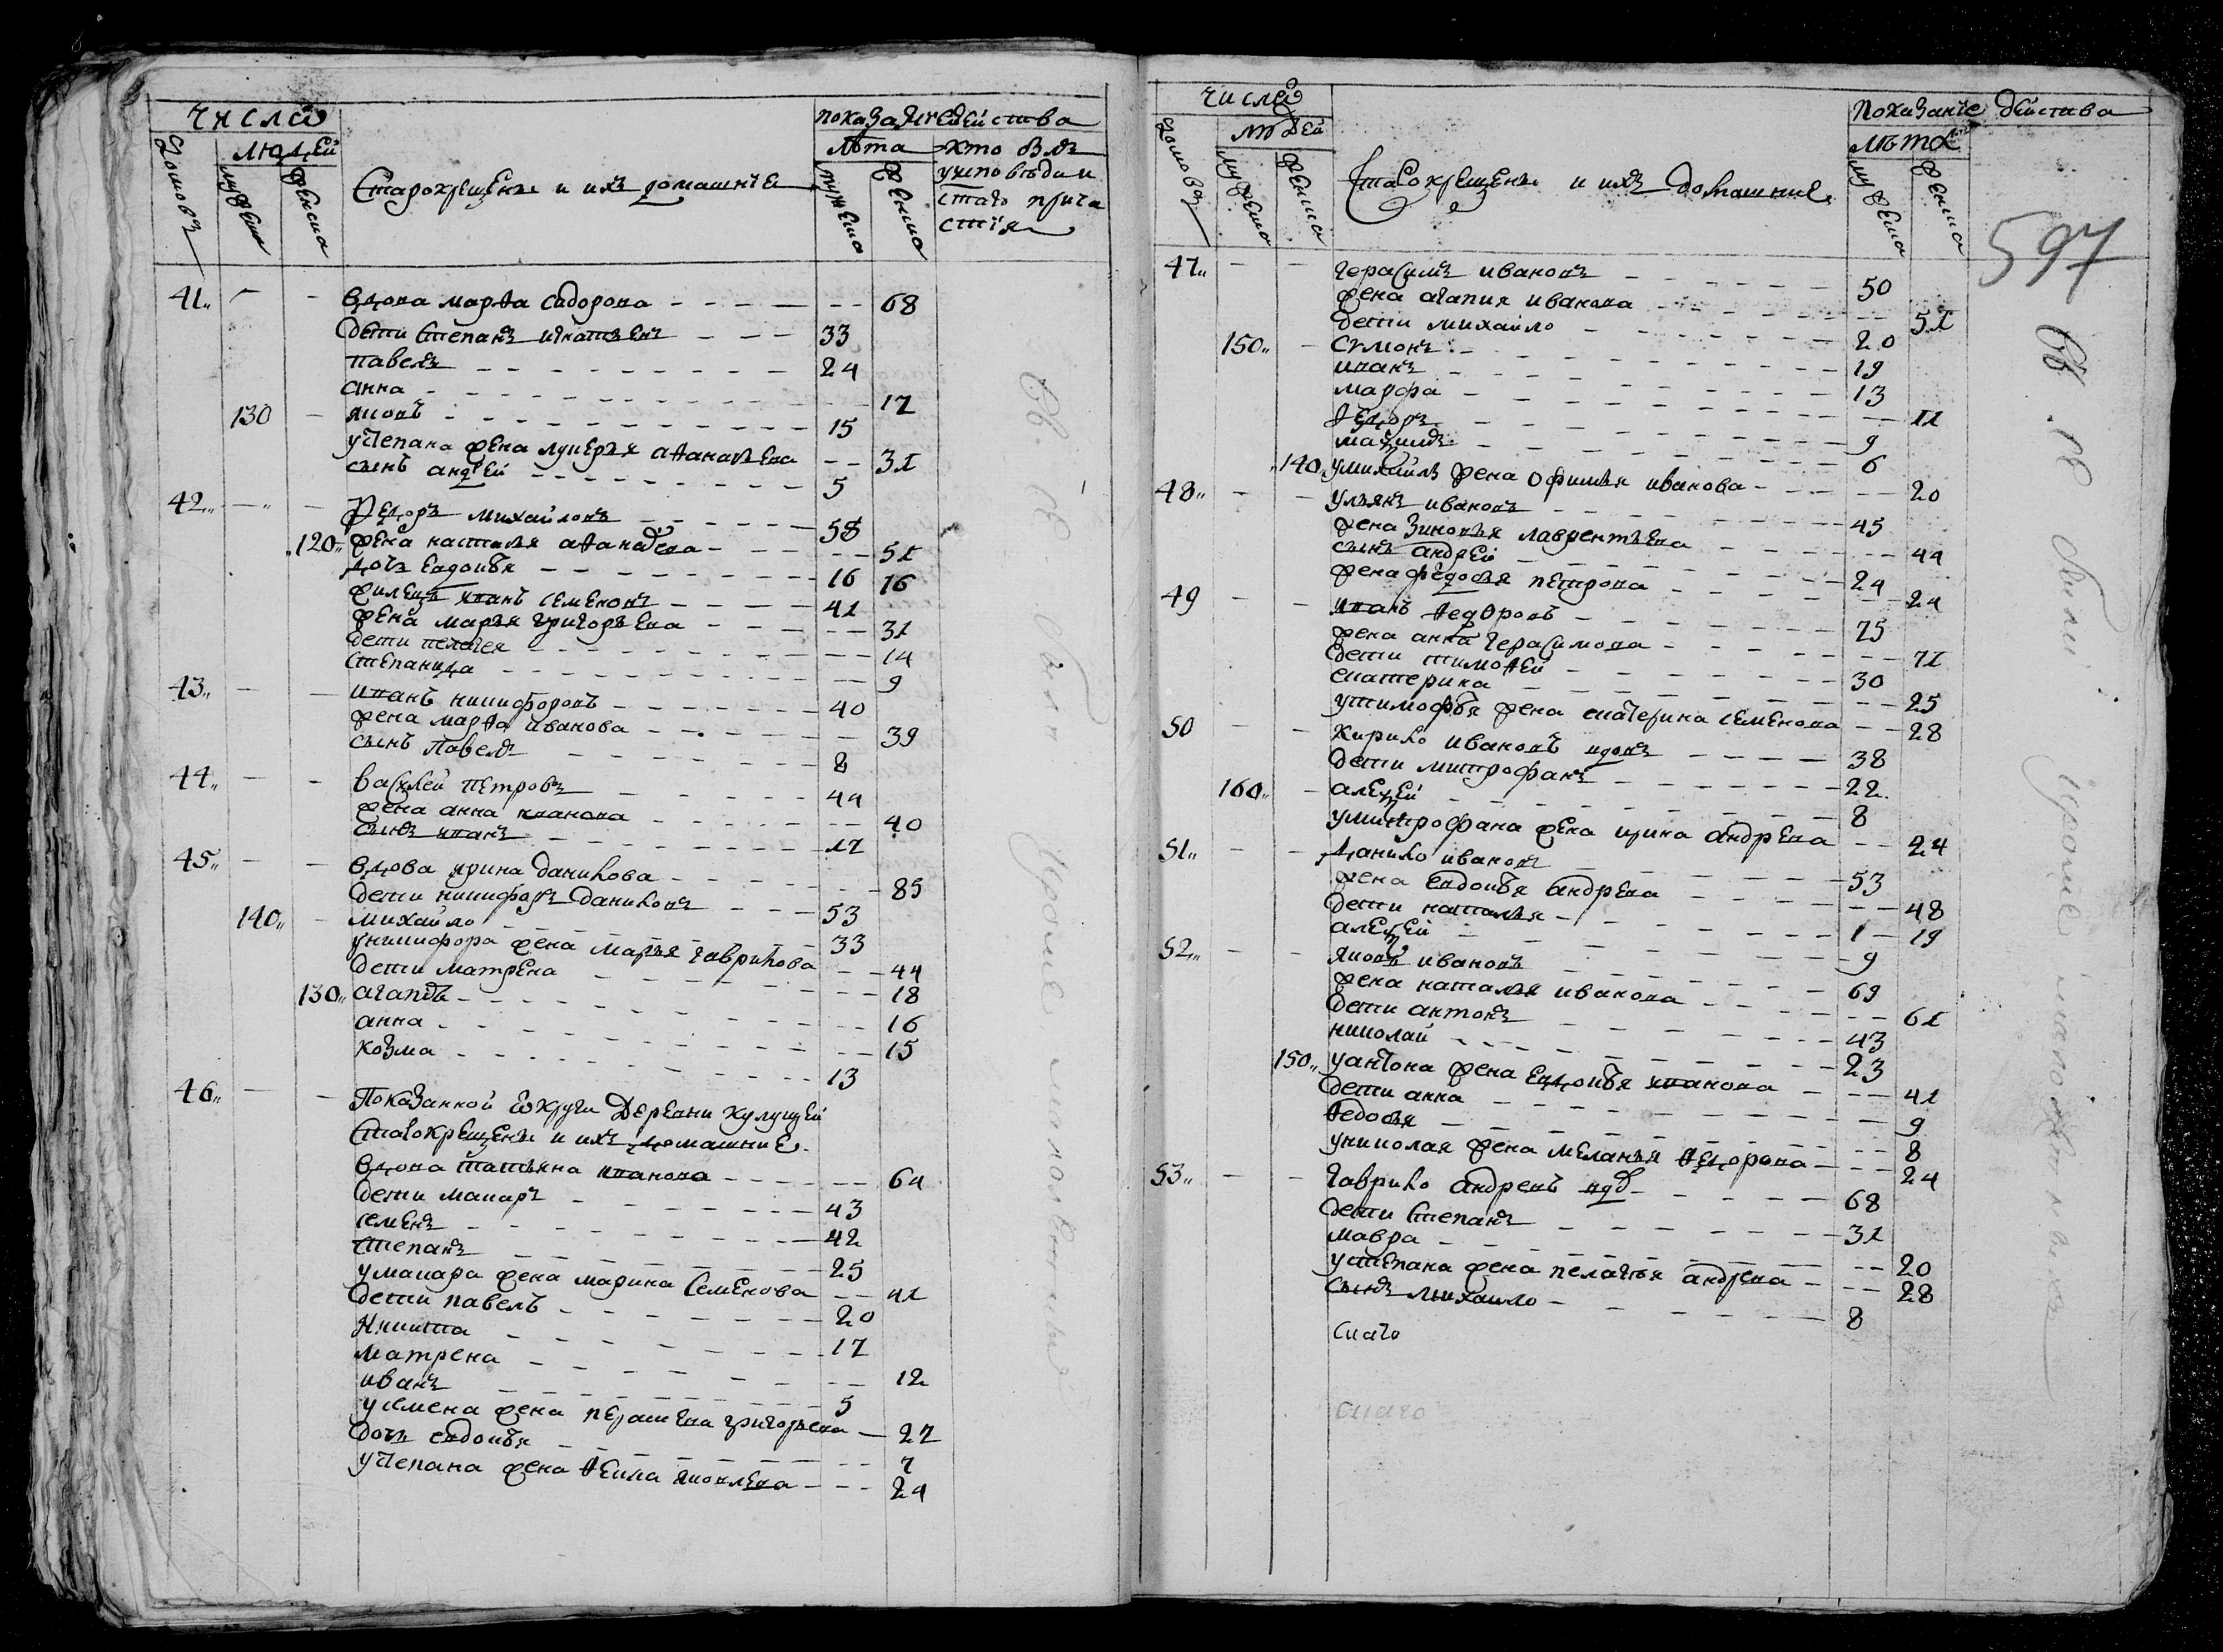 Числа
людей
домовъ
мужска
женска
Старокрещены и ихъ домашнiе
показанiе действа
лѣта
мужска
женска
кто былъ
у исповѣди и
стаго прича
стiя
41 вдова марѳа сидорова 68
дети степанъ игнатьевъ 33
павелъ 24
анна 17
130 яковъ 15
у степана жена лукерья аѳанасьева 31
сынъ андрей 5
42 Ѳедоръ михайловъ 58
120 жена наталья 51
дочь евдокѣя 16 16
иванъ семеновъ 41
жена марья григорьева 31
дети пелагея 14
степанида 9
43 иванъ никифоровъ 40
жена марѳа иванова 39
сынъ павелъ 8
44 василей петровъ 44
жена анна иванова 40
сынъ иванъ 17
45 вдова ирина данилова 85
дети никифоръ даниловъ 53
140 михайло 33
у никифора жена марья гаврилова 44
дети матрена 18
130 агапъ 16
анна 15
козма 13
46 Показанной округи Деревни
Старокрещены и ихъ домашние
вдова татьяна иванова 64
дети макаръ 43
семенъ 42
степанъ 25
у макара жена марина семенова 41
дети павелъ 20
Никита 17
матрена 12
иванъ 5
у семена жена григорьева 27
дочь евдокѣя 7
у степана жена ѳекла яковлева 24
Числа
людей
домовъ
мужска
женска
Старокрещены и ихъ домашние
Показанiе действа
лѣта
мужска
женска
597
47 герасимъ ивановъ 50
жена агапия иванова 51
дети михайло 20
150 сѵмонъ 19
иванъ 13
марфа 11
ѳедоръ 9
максимъ 6
140 у михайлы жена офимья иванова 20
48 ульянъ ивановъ 45
жена зиновья лаврентьева 44
сынъ андрей 24
жена федосья петрова 24
49 иванъ ѳедоровъ 75
жена анна герасимова 71
дети тимоѳей 30
катерина 25
у тимофѣя жена катерина семенова 28
50 кирило ивановъ вдовъ 38
дети митрофанъ 22
160 алексей 8
у митрофана жена ирина андрева 24
51 данило ивановъ 53
жена евдокѣя андрева 48
дети наталья 1 19
алексей 9
52 яковъ ивановъ 69
жена наталья иванова 61
дети антонъ 43
николай 23
150 у антона жена евдокѣя иванова 41
дети анна 9
ѳедосья 8
у николая жена меланья ѳедорова 24
53 гаврило андревъ вдв 68
дети степанъ 31
мавра 20
у степана жена пелагья андрева 28
сынъ михайло 8